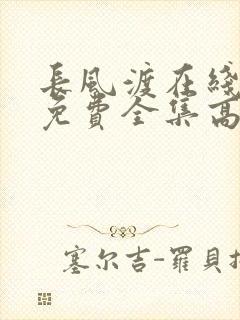 長風渡在綫
免費全集高
塞尔吉-羅貝